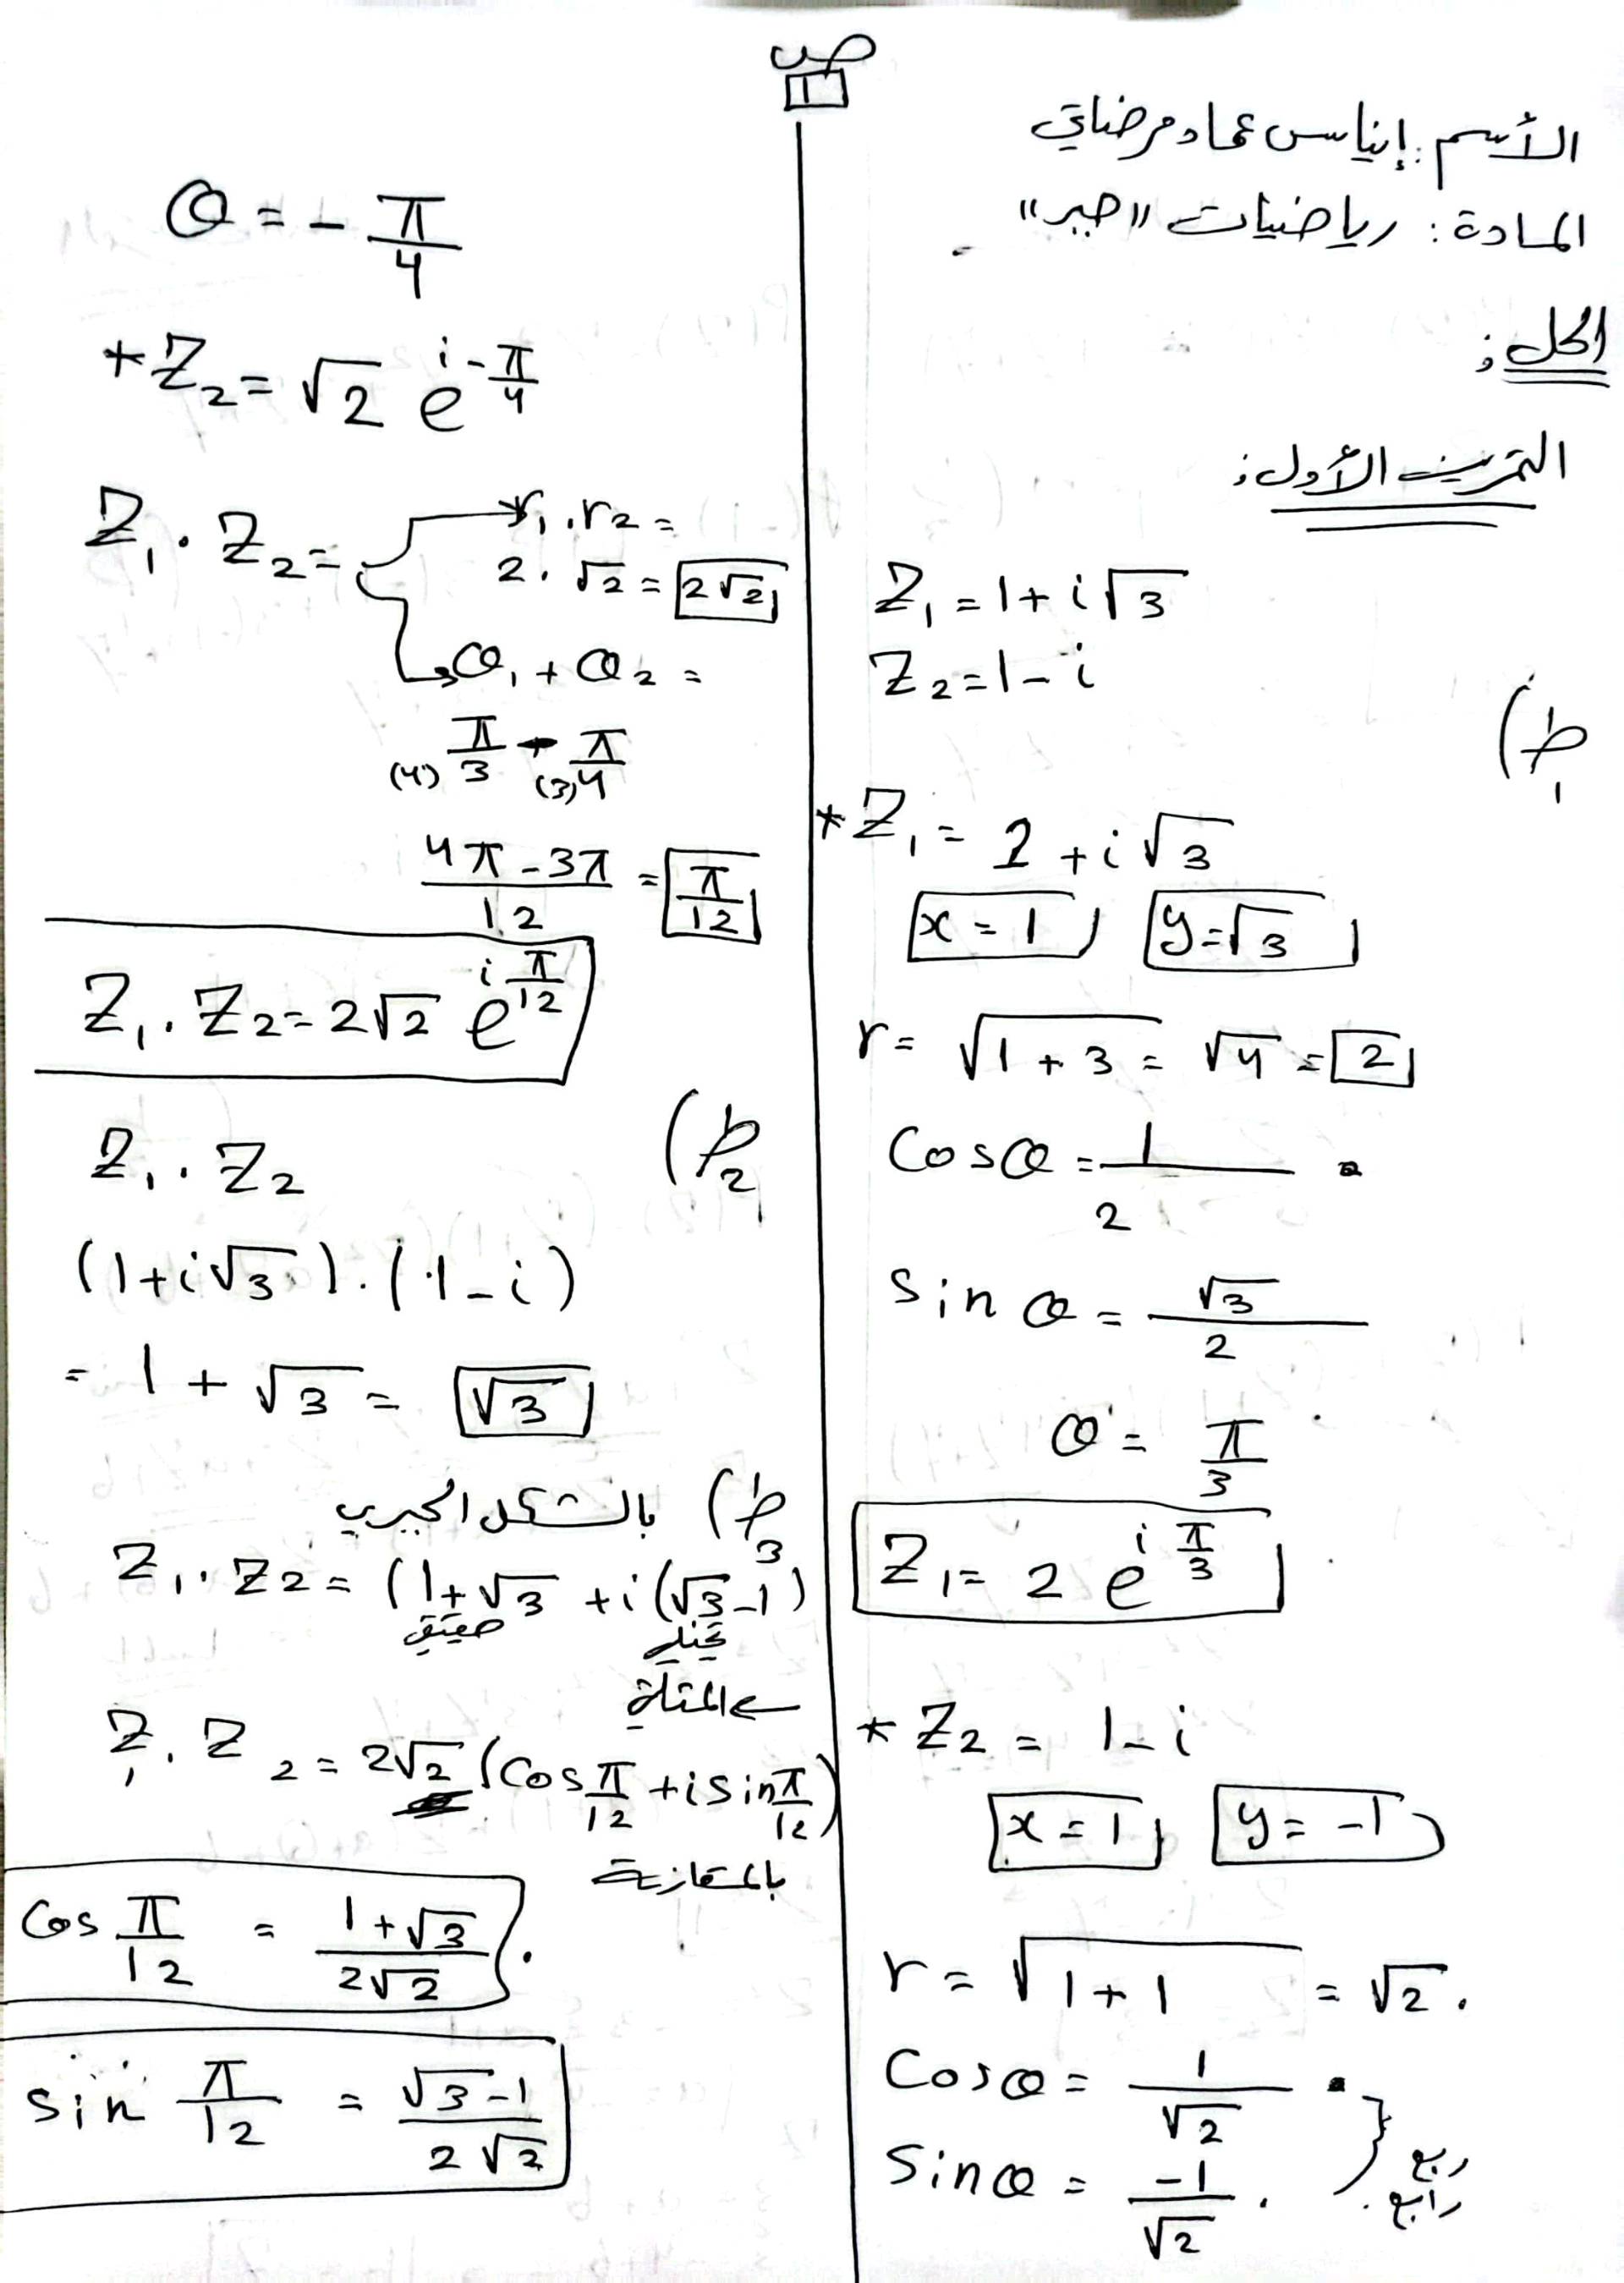 ص
1
الأسم: إيناس عماد مرضاتي
المادة: رياضيات "جبر"
الحل:
التمرين الأول:
Z₁ = 1 + i√3
Z₂ = 1 - i
ط₁)
* Z₁ = 1 + i√3
x = 1 , y = √3
r = √1 + 3 = √4 = 2
Cosθ = 1/2
Sin θ = √3/2
θ = π/3
Z₁ = 2 e^(i π/3)
* Z₂ = 1 - i
x = 1 , y = -1
r = √1 + 1 = √2 .
Cosθ = 1/√2
Sinθ = -1/√2 .
ربع
رابع .
θ = - π/4
* Z₂ = √2 e^(i - π/4)
Z₁ . Z₂ = r₁ . r₂ =
2 . √2 = 2√2
θ₁ + θ₂ =
(4) π/3 - (3) π/4
4π - 3π/12 = π/12
Z₁ . Z₂ = 2√2 e^(i π/12)
ط₂)
Z₁ . Z₂
(1 + i√3) . (1 - i)
= 1 + √3 = √3
ط₃) بالشكل الجبري
Z₁ . Z₂ = (1 + √3 + i(√3 - 1)
حقيقي تخيلي
← المثلثي
Z₁ . Z₂ = 2√2 (Cos π/12 + i sin π/12)
بالمقارنة
Cos π/12 = 1 + √3/2√2 .
Sin π/12 = √3 - 1/2√2